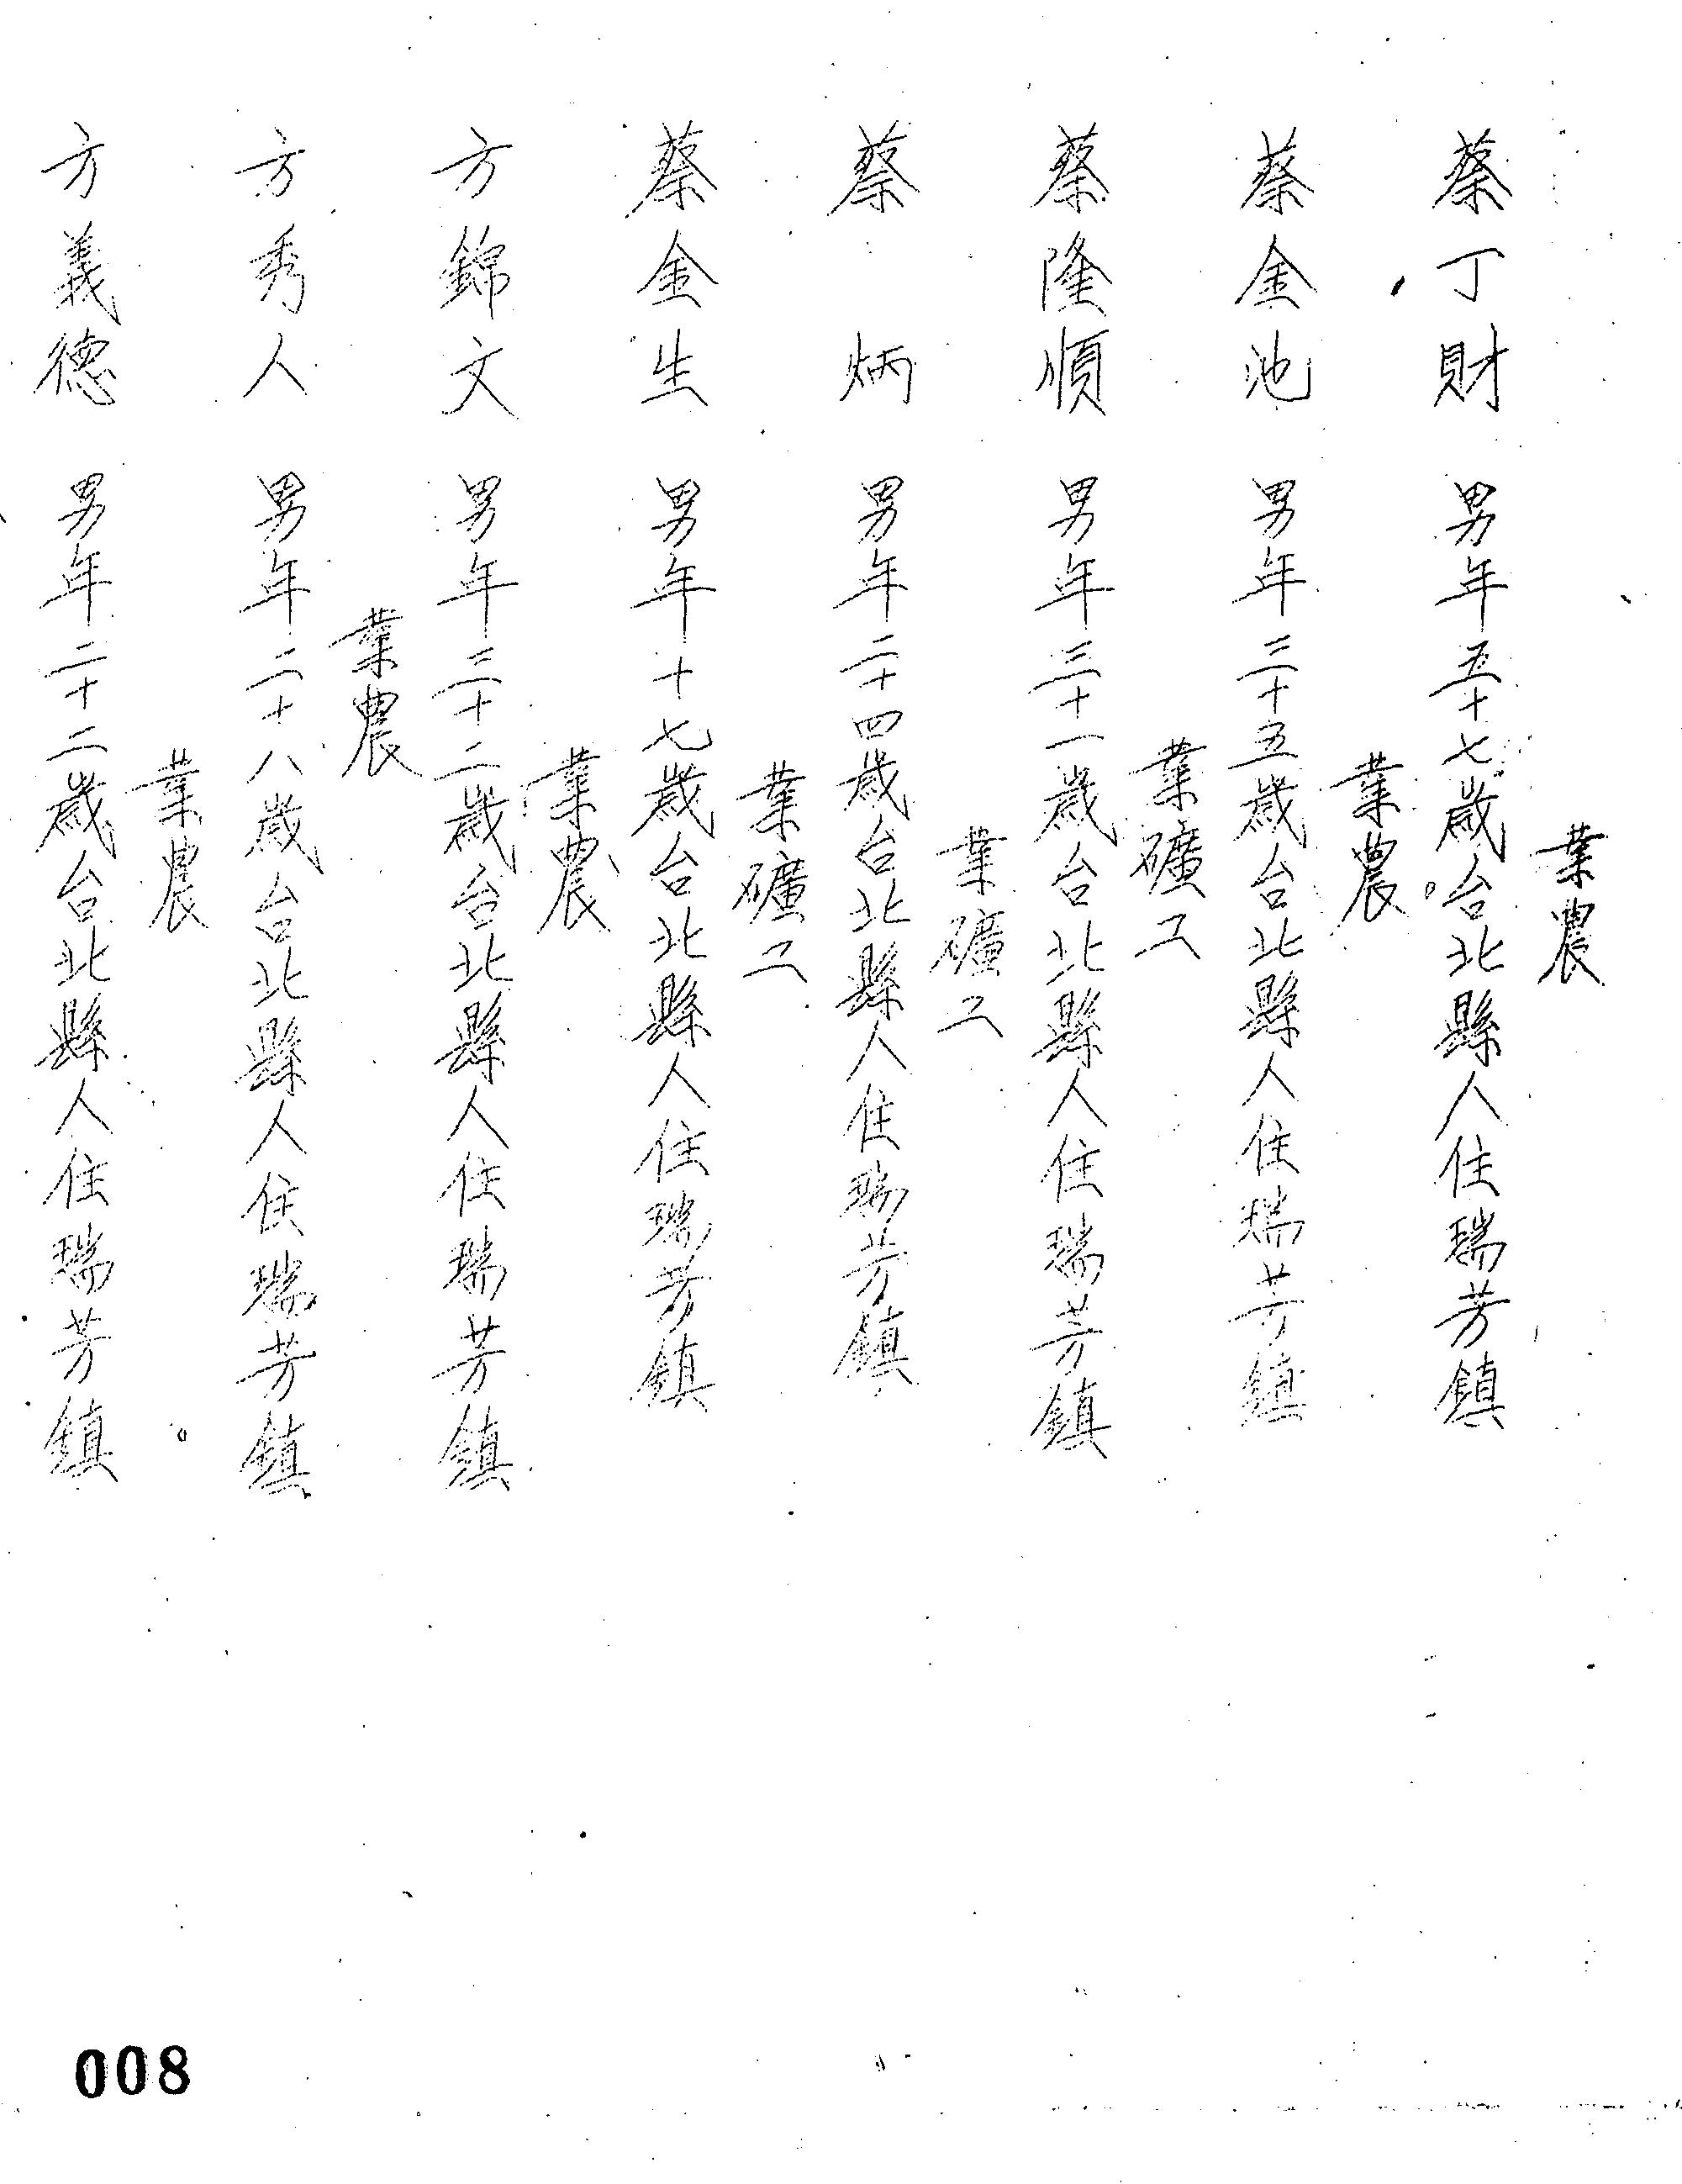 業農
蔡丁財 男年五十七歲台北縣人住瑞芳鎮
業農
蔡金池 男年三十五歲台北縣人住瑞芳鎮
業礦工
蔡隆順 男年三十一歲台北縣人住瑞芳鎮
業礦工
蔡 炳 男年二十四歲台北縣人住瑞芳鎮
業礦工
蔡金生 男年十七歲台北縣人住瑞芳鎮
業農
方錦文 男年三十二歲台北縣人住瑞芳鎮
業農
方秀人 男年二十八歲台北縣人住瑞芳鎮
業農
方義德 男年二十二歲台北縣人住瑞芳鎮
008